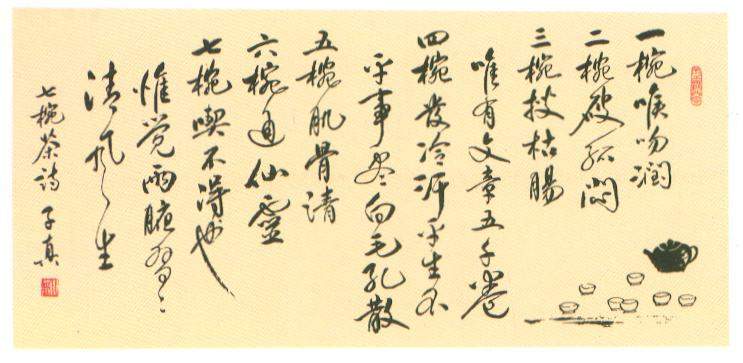 一椀喉吻润
二椀破孤闷
三椀搜枯腸
唯有文章五千卷
四椀发冷汗平生不
平事尽向毛孔散
五椀肌骨清
六椀通仙靈
七椀喫不得也
惟觉两腋習々
清风生
七椀茶诗 子真